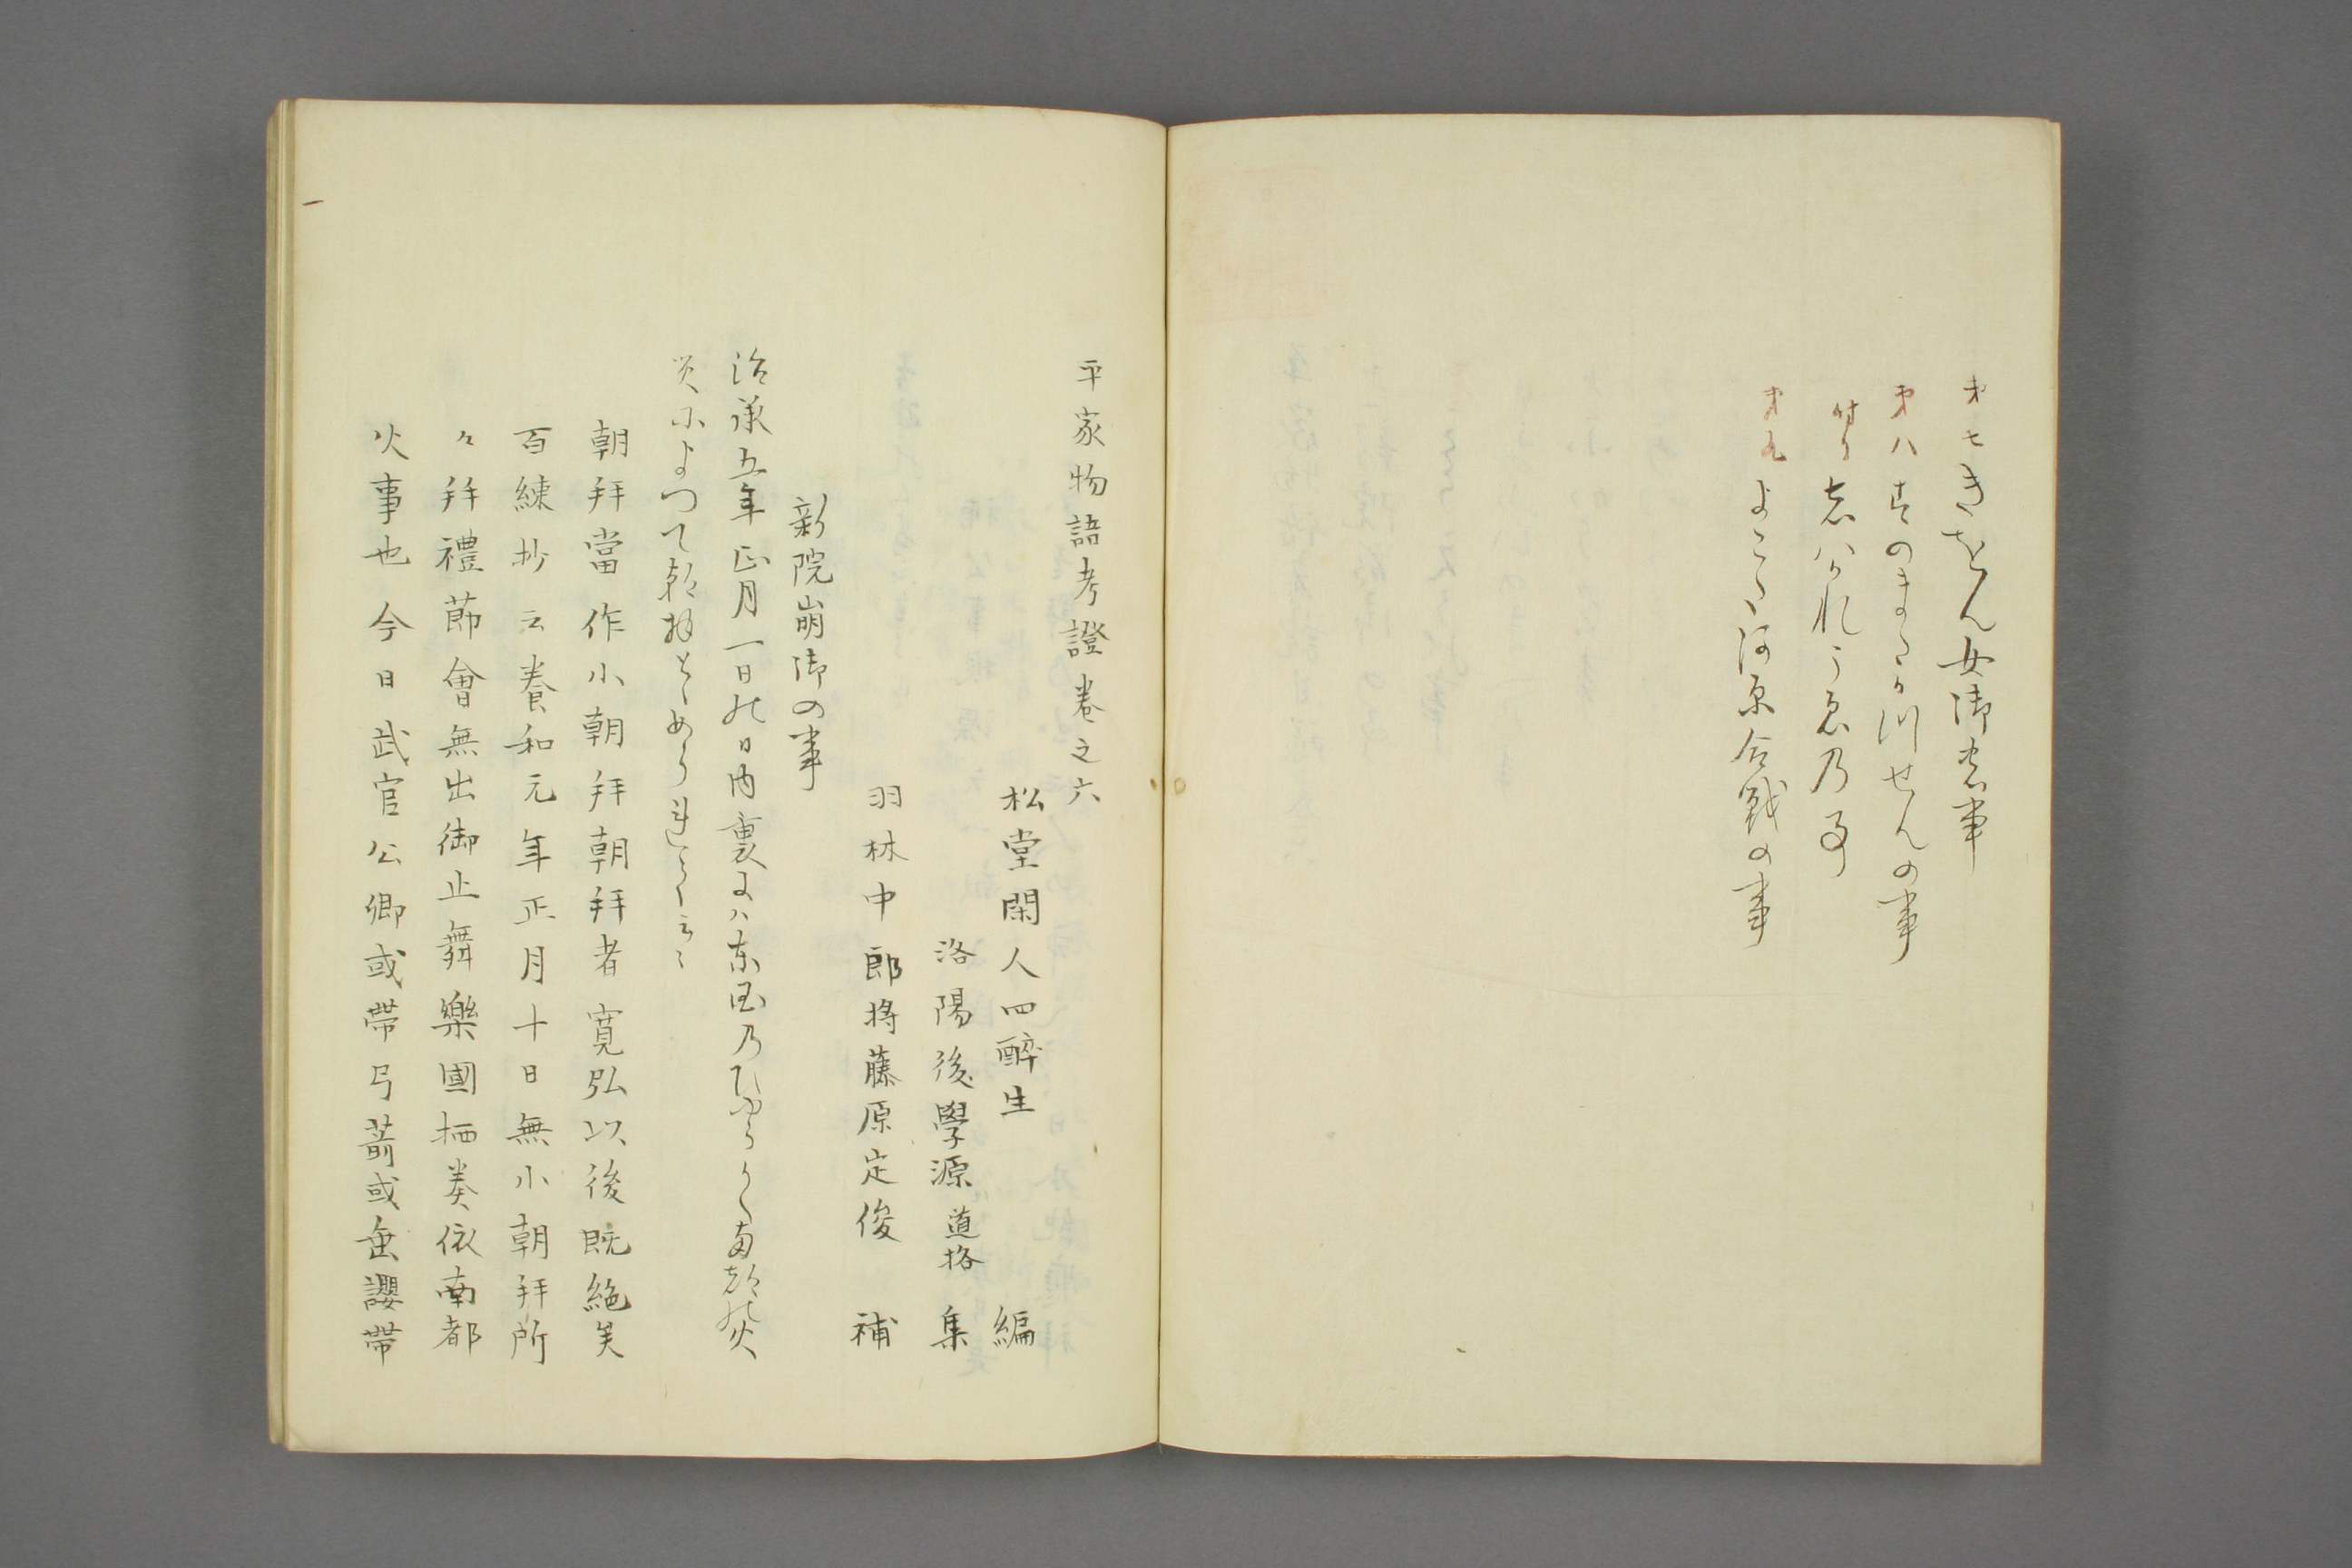 才七きをん女御の事
才八すのまたかつせんの事
付りしはかれこゑの事
才九よこた河原合戦の事
平家物語考證巻之六
松堂閑人四醉生　編
洛陽後學源道格　集
羽林中郎将藤原定俊　補
新院崩御の事
治承五年正月一日の日内裏には東国のひやうらく南都の火
災によつて朝拝とゝめられ云々
朝拜當作小朝拜朝拜者寛弘以後既絶矣
百練抄云養和元年正月十日無小朝拜所
々拜禮節會無出御止舞樂國栖奏依南都
火事也今日武官公卿或帶弓箭或垂纓帶